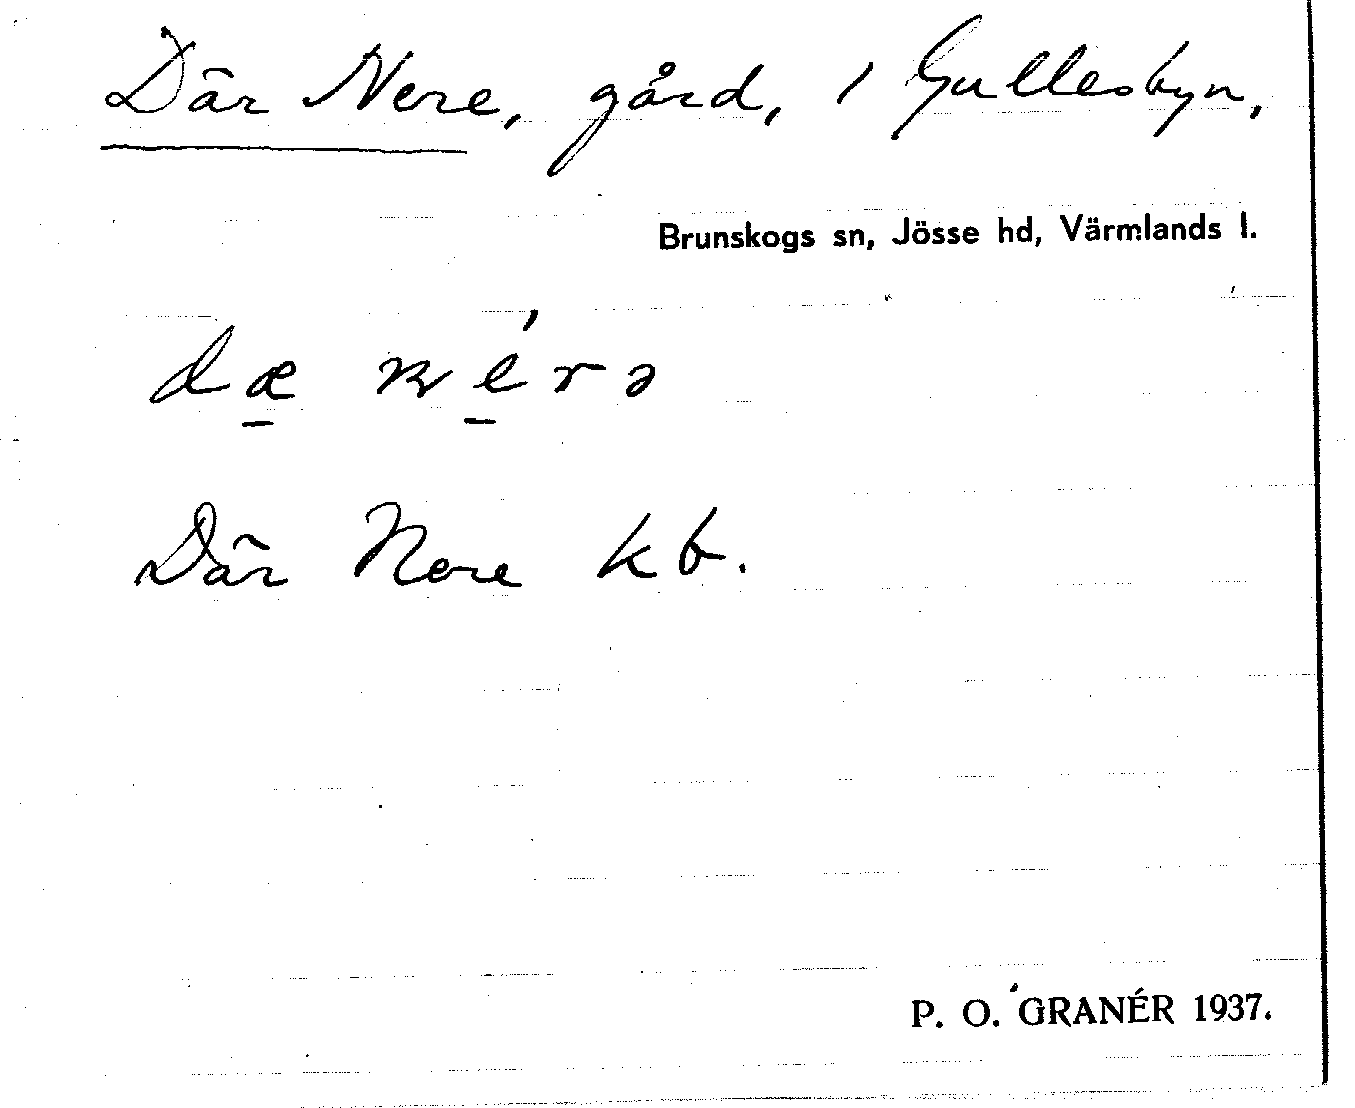 Där Nere, gård, i Gullesbyn,
Brunskogs sn, Jösse hd, Värmlands l.
dæ̱ né̱rə
Där Nere kb.
P. O. GRANÉR 1937.